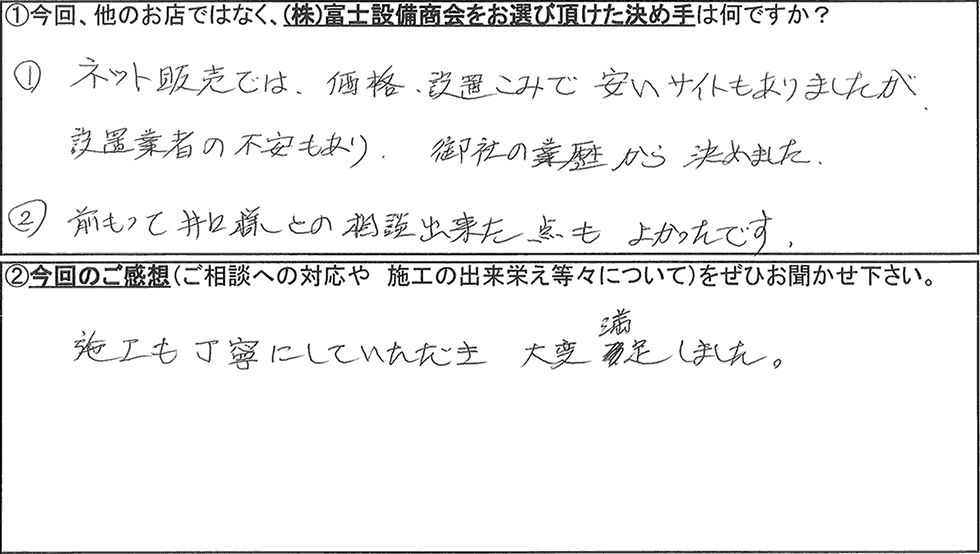 ①今回、他のお店ではなく、(株)富士設備商会をお選び頂けた決め手は何ですか？
① ネット販売では、価格、設置こみで 安いサイトもありましたが、
設置業者の不安もあり、 御社の業歴から 決めました。
② 前もって 井口様との 相談出来た 点も よかったです。
②今回のご感想(ご相談への対応や 施工の出来栄え等々について)をぜひお聞かせ下さい。
施工も丁寧にしていただき 大変 満足しました。